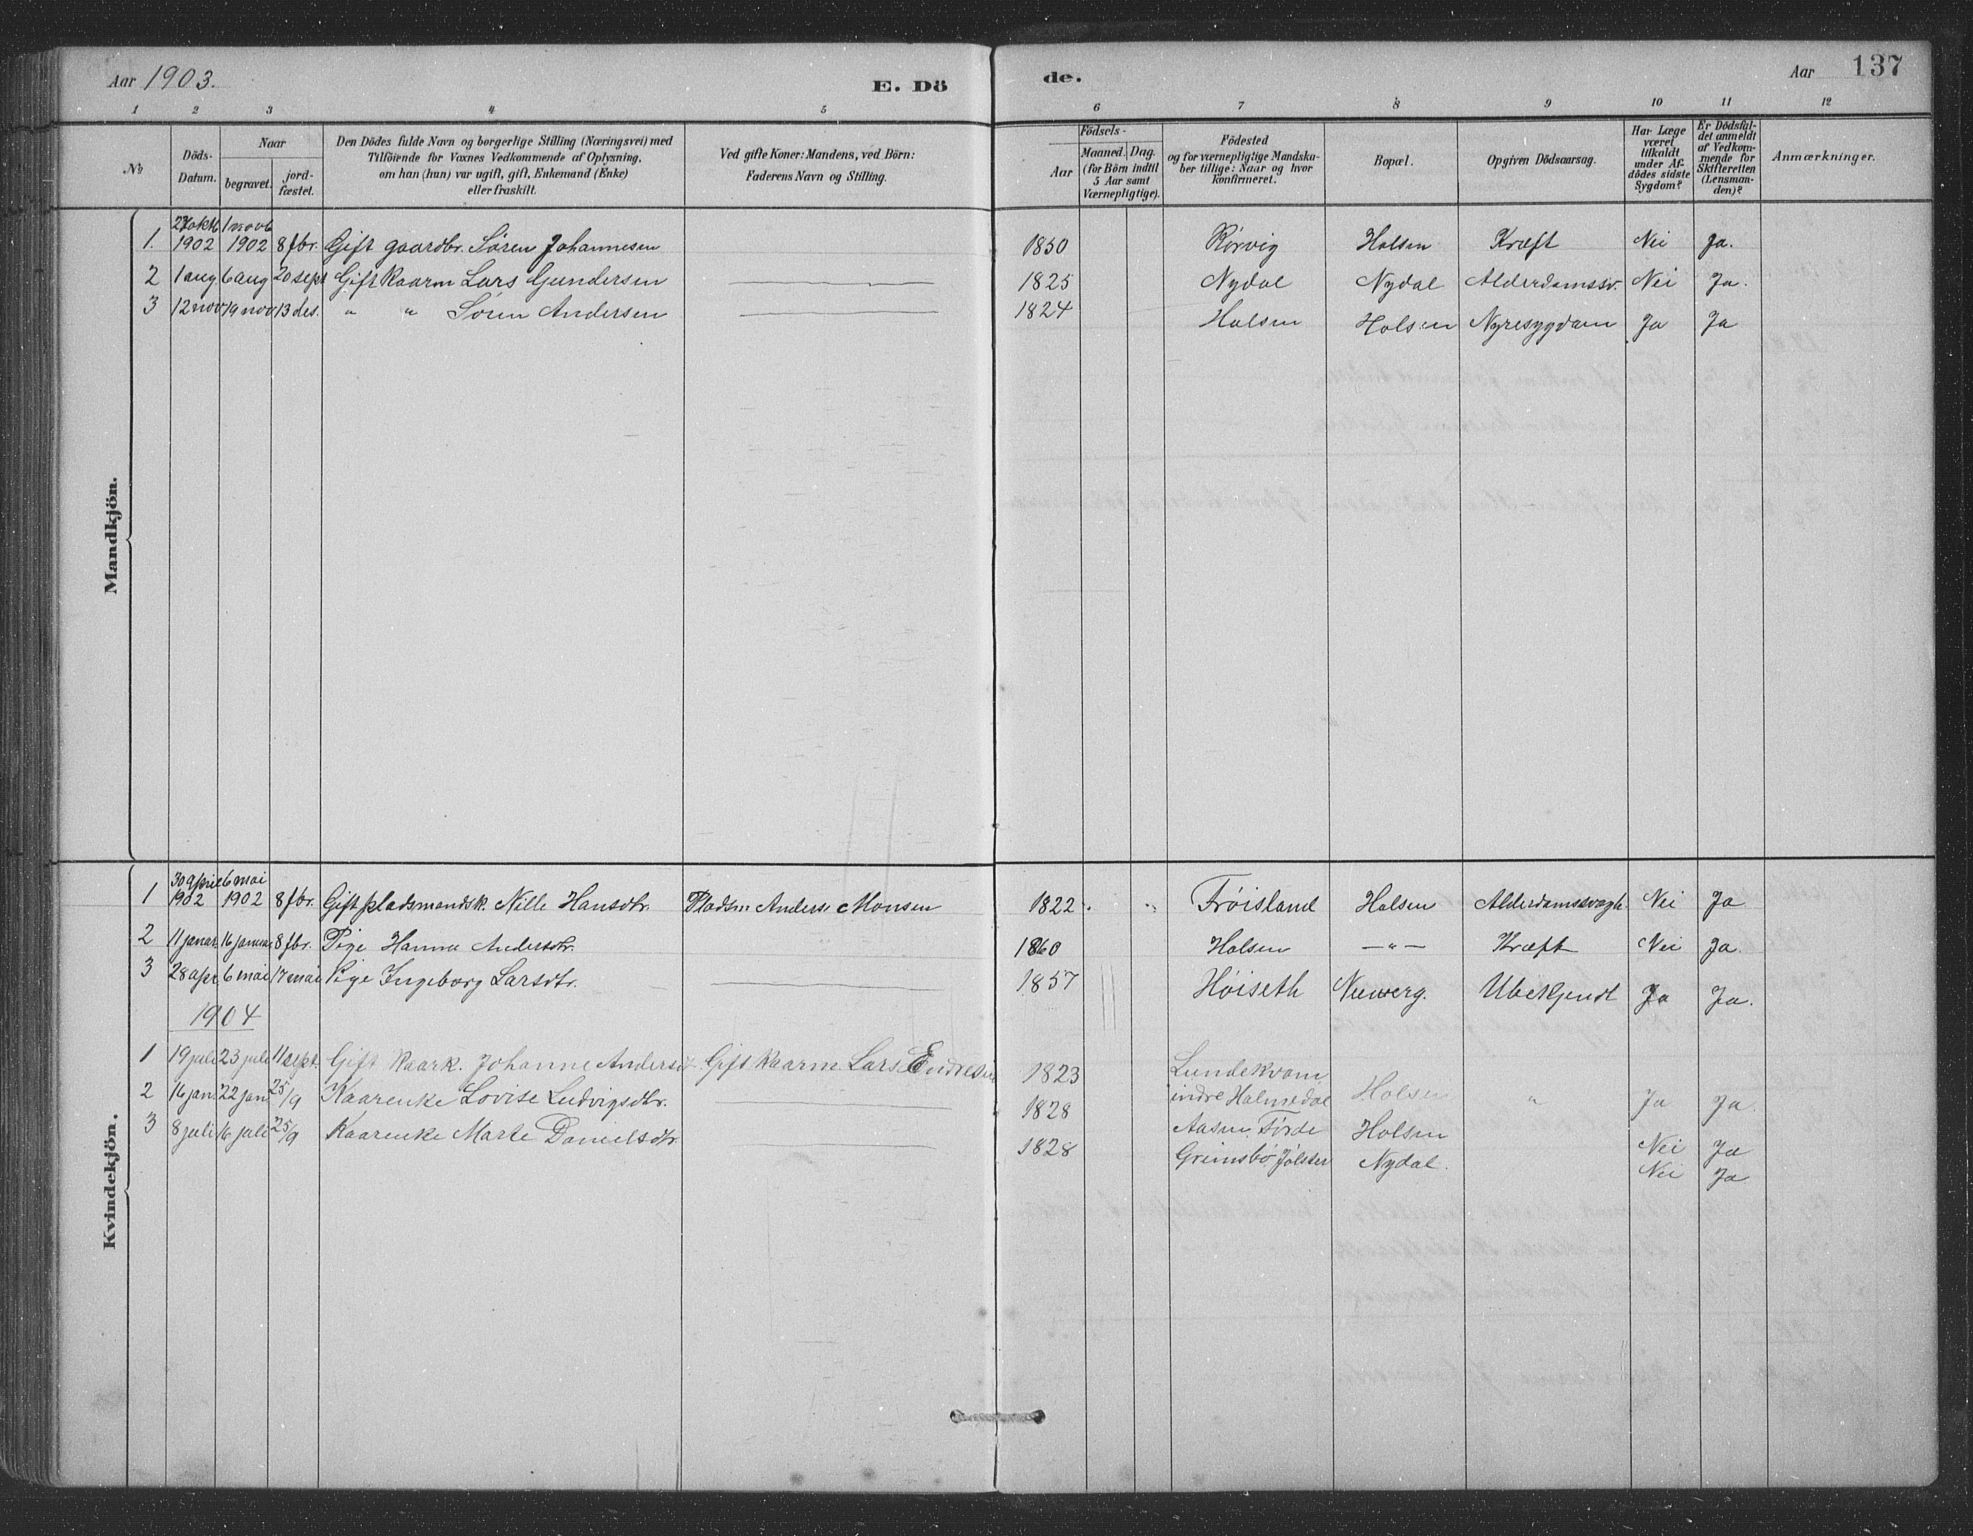 Aar 1903. E. Dö de. Aar 137
1 2 3 4 5 6 7 8 9 10 11 12
№ Döds-Datum. Naar begravet. jord-fæstet. Den Dödes fulde Navn og borgerlige Stilling (Næringsvei) med Tilföiende for Voxnes Vedkommende af Oplysning, om han (hun) var ugift, gift, Enkemand (Enke) eller fraskilt. Ved gifte Koner: Mandens, ved Börn: Faderens Navn og Stilling. Födsels- Aar Maaned. Dag. (for Börn indtil 5 Aar samt Værnepligtige). Födested og for værnepligtige Mandskaber tillige: Naar og hvor konfirmeret. Bopæl. Opgiven Dödsaarsag. Har Læge været tilkaldt under Afdödes sidste Sygdom? Er Dödsfaldet anmeldt af Vedkommende for Skifteretten (Lensmanden)? Anmærkninger.
Mandkjön.
1. 1902 1 novb 1902 8 fbr. Gift gaardbr. Søren Johannesen 1850 Rørvig Holsen Kræft Nei Ja.
2 1 aug 6 aug 20 sept Gift Kaarm Lars Gundersen 1825 Nydal Nydal Alderdomssv. Nei Ja.
3 12 nov 19 nov 13 des. " " Søren Andersen 1824 Holsen Holsen Nyresygdom Ja Ja
Kvindekjön.
1 30 april 1902 6 mai 1902 8 fbr. Gift pladsmandsk. Nille Hansdtr. Pladsm Anders Monsen 1822 " Frøisland Holsen Alderdomssvagh. Nei Ja
2 11 januar 16 januar 8 fbr. Pige Hanna Andersdtr. 1860 Holsen —"— Kræft Nei Ja.
3 28 apr 6 mai 17 mai Pige Ingeborg Larsdtr. 1857 Høiseth Ubekjendt Ja Ja.
1904
1 19 juli 23 juli 11 sept. Gift Kaark. Johanne Andersd Gift Kaarm Lars Endresen 1823 Lundekvam indre Holmedal Holsen " Ja Ja
2 16 jan. 22 jan 25/9 Kaarenke Lovise Ludvigsdtr. 1828 Aasen, Førde Holsen Nei Ja
3 8 juli 16 juli 25/9 Kaarenke Marte Danielsdtr 1828 Grimsbø Jølster Nydal. Nei Ja